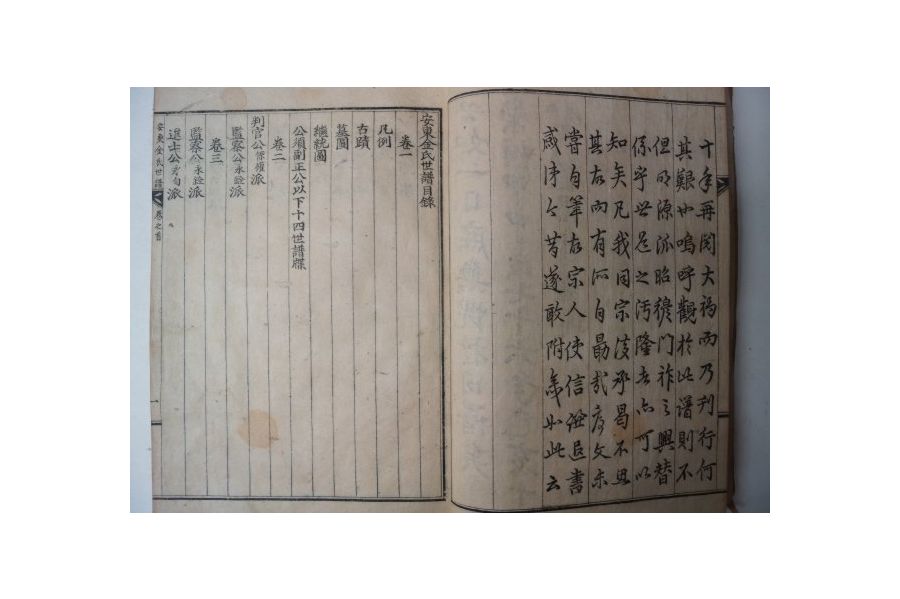 十年再閱大禍而乃刊行何
其艱也嗚呼觀於此譜則不
但明源派昭穆門祚之興替
係乎世危之汚隆者亦可以
知矣凡我同宗後承曷不思
其在而有所自勗哉序文亦
嘗自筆在宗人使信 追書
感 今昔遂敢附 如此云
安東金氏世譜目錄
卷一
凡例
古蹟
墓圖
繼統圖
公須副正公以下十四世譜牒
卷二
判官公 派
監察公永銓派
卷三
監察公永銓派
進士公 派
安東金氏世譜 卷之首 一